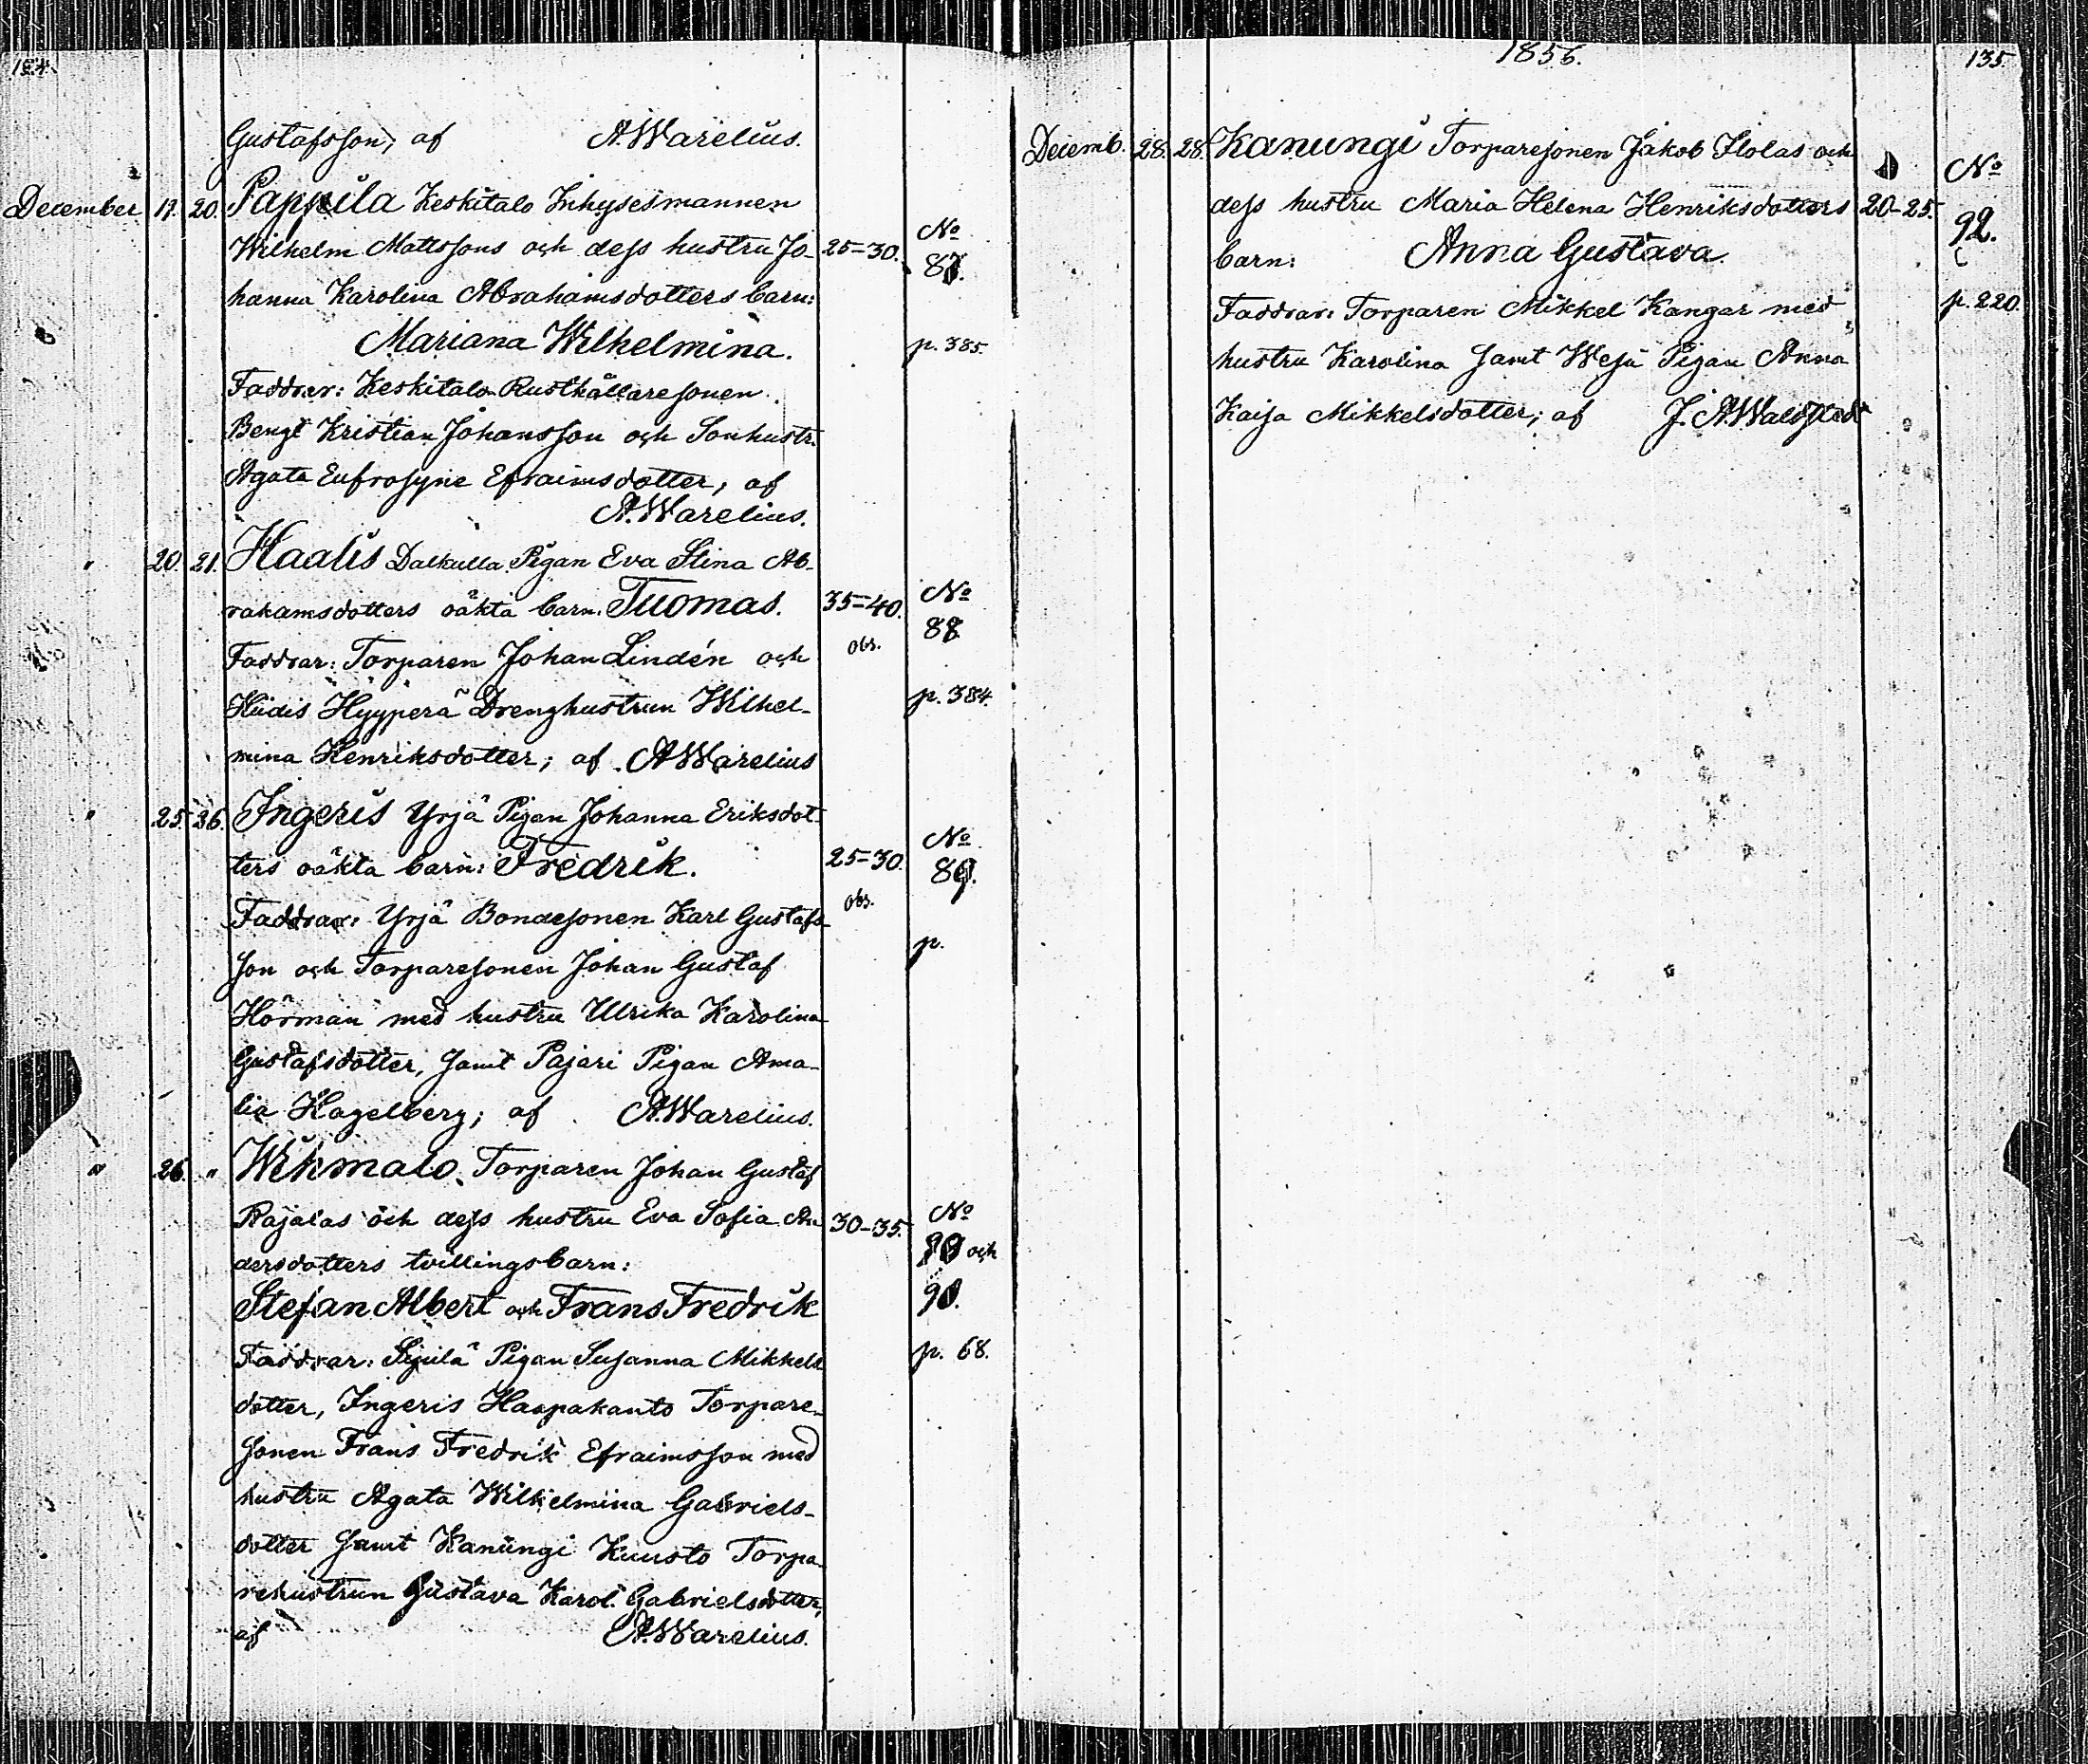 134.
Gustafsson; af A. Warelius.
December 17. 20. Pappila Keskitalo Inhysesmannen
Wilhelm Mattssons och dess hustru Jo- 25=30. No
hanna Karolina Abrahamsdotters barn: 87.
Mariana Wilhelmina. p. 385.
Faddrar: Keskitalo Rusthållaresonen
Bengt Kristian Johansson och Sonhustr.
Agata Eufrosyne Efraimsdotter; af
A. Warelius.
" 20. 21. Haalis Dalkulla Pigan Eva Stina Ab-
rahamsdotters oäkta barn: Tuomas. 35=40. No
Faddrar: Torparen Johan Lindén och obs. 88
Hiidis Hyyperä Drenghustrun Wilhel- p. 384.
mina Henriksdotter; af A Warelius
" 25. 26. Ingeris Yrjä Pigan Johanna Eriksdot-
ters oäkta barn: Fredrik. 25=30. No 89.
Faddrar: Yrjä Bondesonen Karl Gustafs- obs.
son och Torparesonen Johan Gustaf p.
Hörman med hustru Ulrika Karolina
Gustafsdotter, samt Pajari Pigan Ama-
lia Hagelberg; af A. Warelius.
" 26. " Wehmalo. Torparen Johan Gustaf
Rajalas och dess hustru Eva Sofia An 30-35. No
dersdotters tvillingsbarn: och
Stefan Albert och Frans Fredrik
Faddrar: Sjuilä Pigan Susanna Mikkels p. 68.
dotter, Ingeris Haapakanto Torpare-
sonen Frans Fredrik Efraimsson med
hustru Agata Wilhelmina Gabriels-
dotter samt Kanungi Kuusto Torpa-
rehustrun Gustava Karol. Gabrielsdotter,
af A. Warelius.
1856. 135.
Decemb. 28. 28. Kanungi Torparesonen Jakob Ilolas och No
dess hustru Maria Helena Henriksdotters 20-25. 92.
barn: Anna Gustava.
Faddrar: Torparen Mikkel Kangar med p. 220.
hustru Karolina samt Wesu Pigan Anna
Kaisa Mikkelsdotter; af J. A. Waldstedt